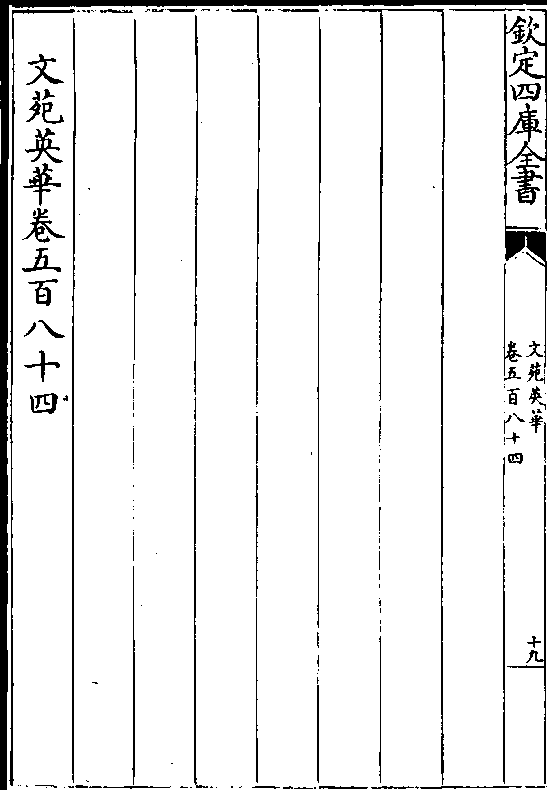 欽定四庫全書
文苑英華
卷五百八十四
十九
文苑英華卷五百八十四